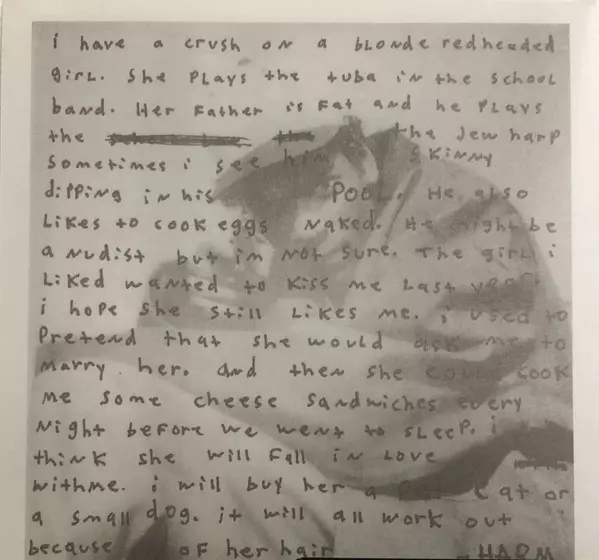 i have a crush on a blonde redheaded
girl. She plays the tuba in the school
band. Her Father is Fat and he plays
the the the Jew harp
Sometimes i see him SKinny
dipping in his POOL. He also
Likes to cook eggs naked. He might be
a nudist but im not sure. The girl i
Liked wanted to Kiss me Last year
i hope she still Likes me. i used to
Pretend that she would ask me to
marry her. and then she could cook
me some cheese sandwiches every
night before we went to sleep. i
think she will fall in love
withme. i will buy her a cat or
a small dog. it will all work out
because of her hair - HARM